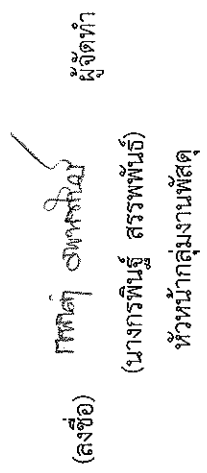 (ลงชื่อ) ผู้จัดทำ
(นางกรพินธุ์ สรรพพันธ์)
หัวหน้ากลุ่มงานพัสดุ